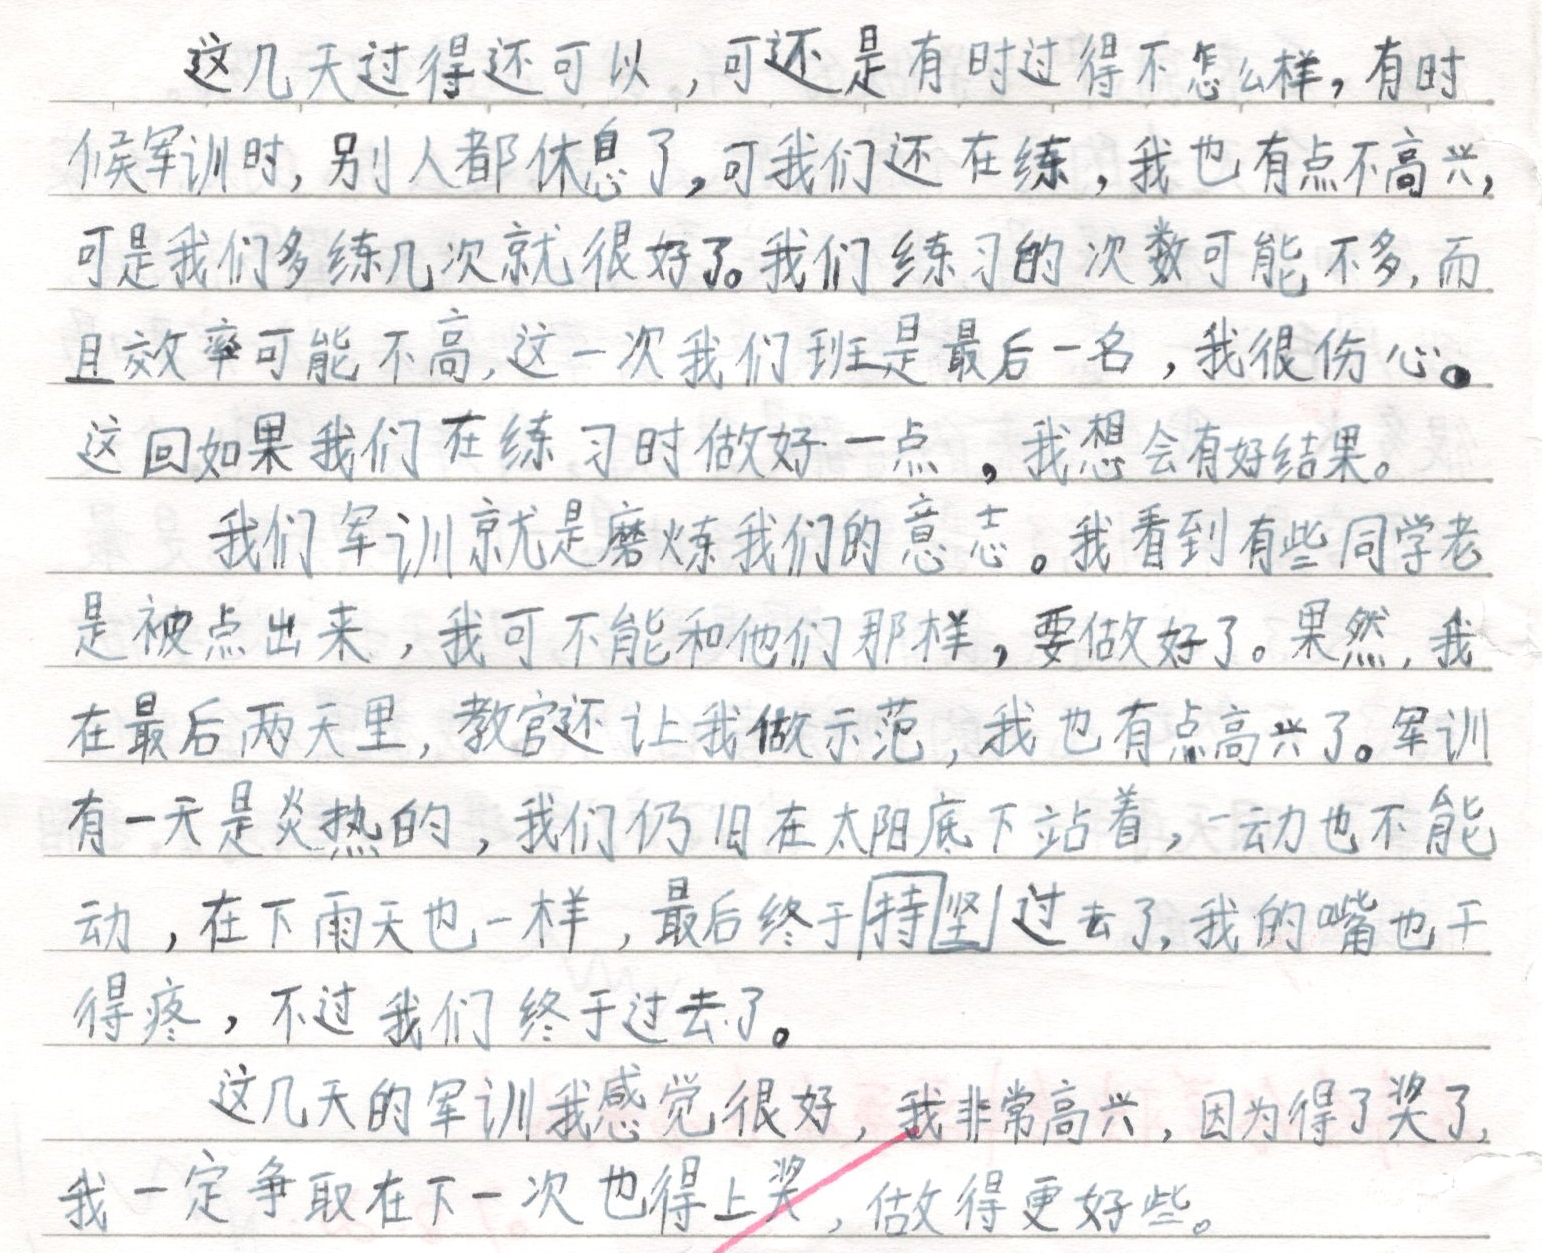 这几天过得还可以，可还是有时过得不怎么样，有时
候军训时，别人都休息了，可我们还在练，我也有点不高兴，
可是我们多练几次就很好了。我们练习的次数可能不多，而
且效率可能不高，这一次我们班是最后一名，我很伤心。
这回如果我们在练习时做好一点，我想会有好结果。
我们军训就是磨炼我们的意志。我看到有些同学老
是被点出来，我可不能和他们那样，要做好了。果然，我
在最后两天里，教官还让我做示范，我也有点高兴了。军训
有一天是炎热的，我们仍旧在太阳底下站着，一动也不能
动，在下雨天也一样，最后终于持坚过去了，我的嘴也干
得疼，不过我们终于过去了。
这几天的军训我感觉很好，我非常高兴，因为得了奖了，
我一定争取在下一次也得上奖，做得更好些。